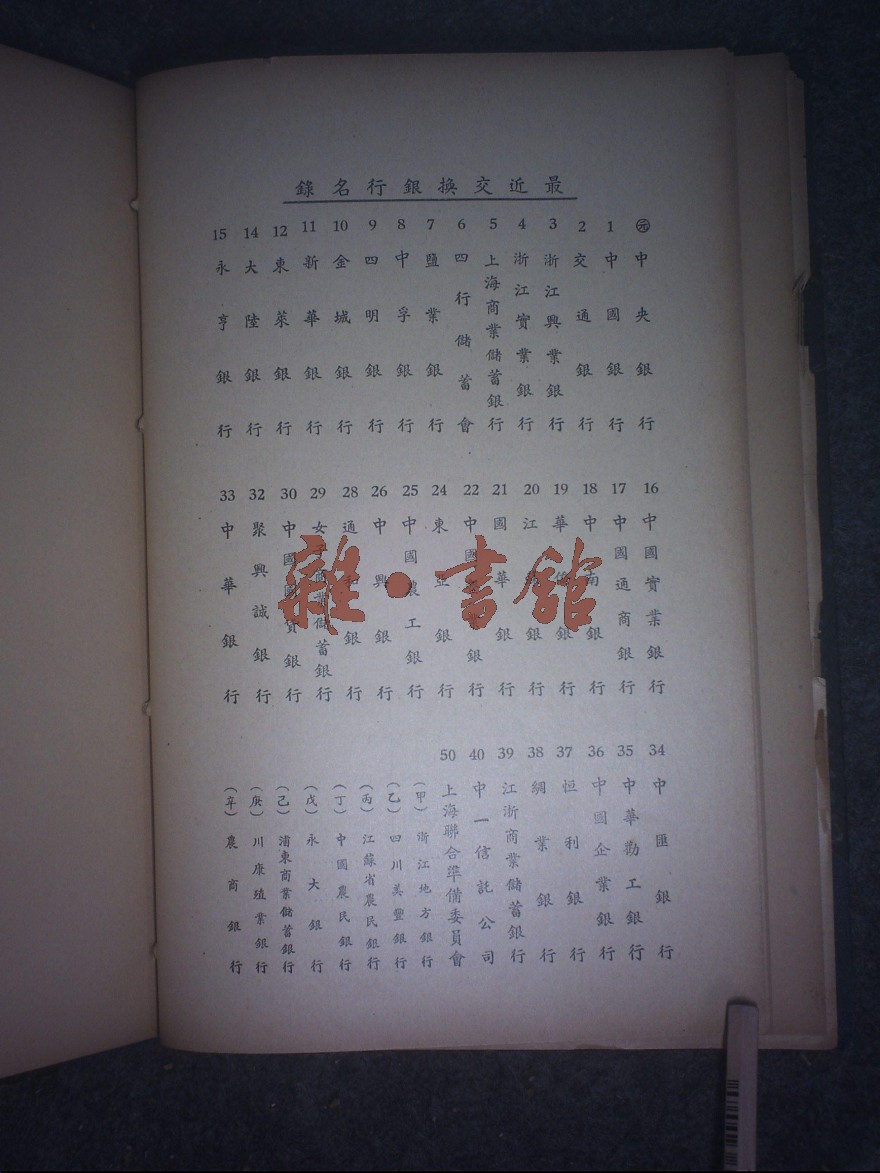 最近交換銀行名錄
㊎ 中央銀行
1 中國銀行
2 交通銀行
3 浙江興業銀行
4 浙江實業銀行
5 上海商業儲蓄銀行
6 四行儲蓄會
7 鹽業銀行
8 中孚銀行
9 四明銀行
10 金城銀行
11 新華銀行
12 東萊銀行
14 大陸銀行
15 永亨銀行
16 中國實業銀行
17 中國通商銀行
18 中南銀行
19 華僑銀行
20 江銀行
21 國華銀行
22 中國銀行
24 東亞銀行
25 中國農工銀行
26 中興銀行
28 通銀行
29 女子商業儲蓄銀行
30 中國國貨銀行
32 聚興誠銀行
33 中華銀行
34 中匯銀行
35 中華勸工銀行
36 中國企業銀行
37 恒利銀行
38 綢業銀行
39 江浙商業儲蓄銀行
40 中一信託公司
50 上海聯合準備委員會
(甲) 浙江地方銀行
(乙) 四川美豐銀行
(丙) 江蘇省農民銀行
(丁) 中國農民銀行
(戊) 永大銀行
(己) 浦東商業儲蓄銀行
(庚) 川康殖業銀行
(辛) 農商銀行
雜·書館